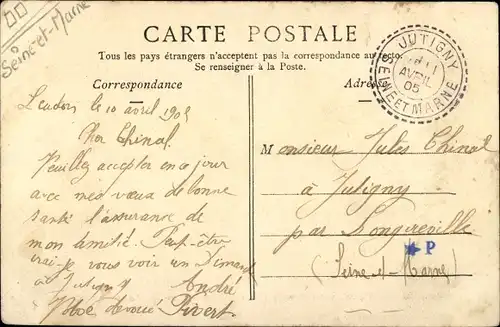 DD
Seine-et-Marne
CARTE POSTALE
Tous les pays étrangers n'acceptent pas la correspondance au recto.
Se renseigner à la Poste.
Correspondance
Adresse
JUTIGNY
11
AVRIL
05
SEINE ET MARNE
le 10 avril 1905
Mon Chinal
Veuillez accepter en ce jour
avec mes vœux de bonne
santé l'assurance de
mon amitié. Peut-être
vrai-je vous voir un Dimanche
à Jutigny
André
dévoué Privert
Monsieur Jules Chinal
à Jutigny
par Longueville
(Seine-et-Marne)
P